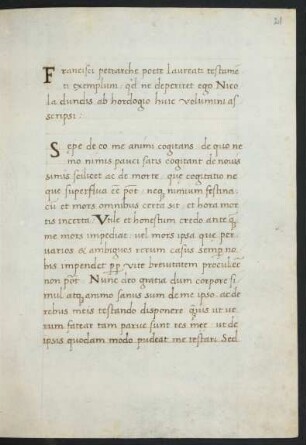 21
Francisci petrarche poete laureati testamē
ti exemplum: qd ne deperiret ego Nico
la dundus ab horologio huic volumini as
scripsi:
Sepe de eo me animi cogitans: de quo ne
mo nimis pauci satis cogitant de nouis
simis scilicet ac de morte. que cogitatio ne
que superflua eē pōt: neqȝ nimium festina:
cū et mors omnibus certa sit: et hora mor
tis incerta. Vtile et honestum credo
me mors impediat: vel mors ipsa que per
uarios & ambiguos rerum casus semp no
bis impendet: pp vite breuitatem procul eē
non pōt. Nunc dum corpore si
mul atqȝ animo sanus sum de me ipso: ac de
rebus meis testando disponere. quis ut ue
rum fatear tam parue sunt res mee: ut de
ipsis quodam modo pudeat me testari. Sed